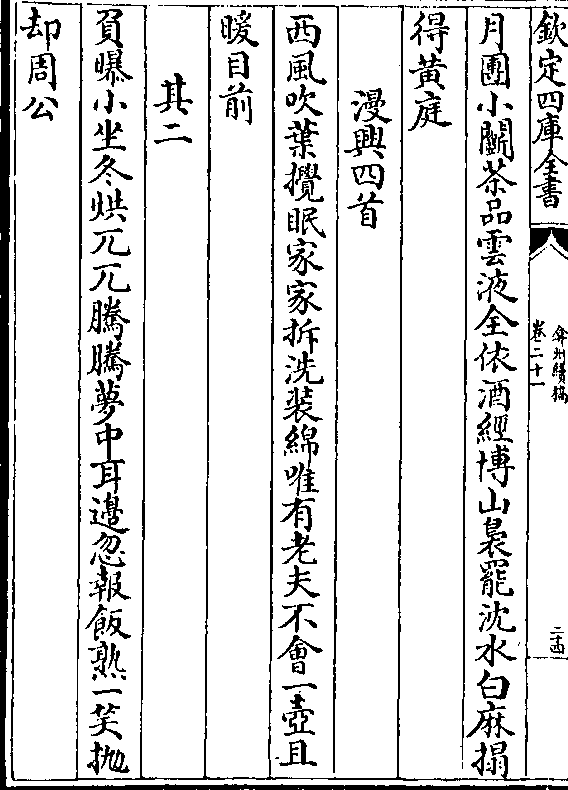 欽定四庫全書
弇州續稿
卷二十一
二十四
月團小鬭茶品雲液全依酒經博山裊罷沈水白麻搨
得黃庭
漫興四首
西風吹葉攪眠家家拆洗装綿唯有老夫不會一壺且
暖目前
其二
負曝小坐冬烘兀兀騰騰夢中耳邉忽報飯熟一笑抛
却周公